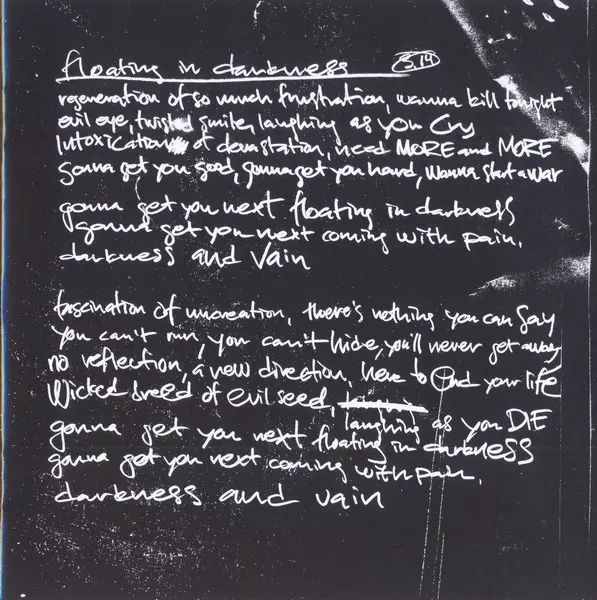 floating in darkness 3.14
regeneration of so much frustration, wanna kill tonight
evil eye, twisted smile, laughing as you Cry
Intoxication of devastation, need MORE and MORE
Gonna get you good, gonna get you hard, wanna start a war
gonna get you next floating in darkness
gonna get you next coming with pain.
darkness and Vain
fascination of uncreation, there's nothing you can say
You can't run, you can't hide, you'll never get away
no reflection, a new direction, here to end your life
Wicked breed of evil seed,
laughing as you DIE
gonna get you next floating in darkness
gonna get you next coming with pain.
darkness and vain